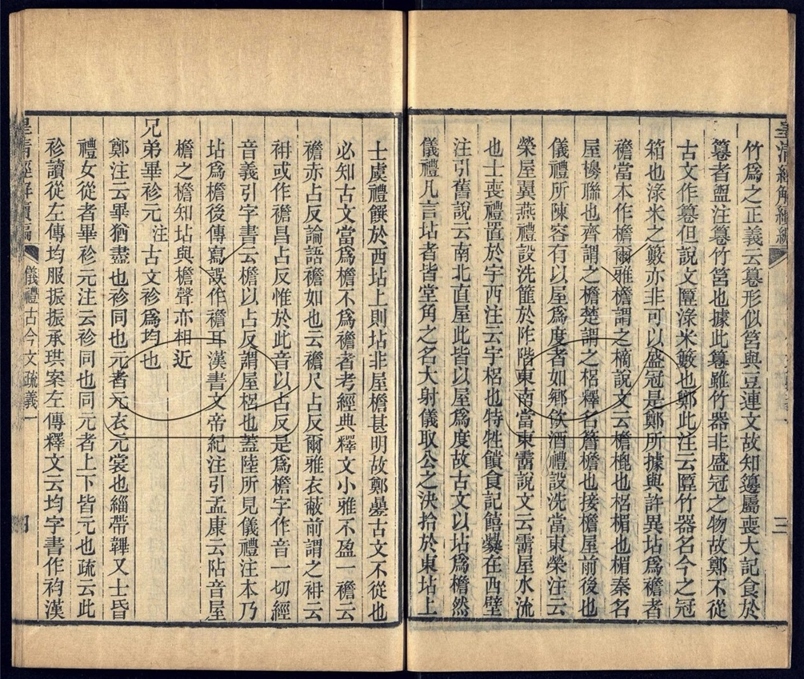 皇清經解續編
竹爲之正義云籩形似筥與豆連文故知籩屬喪大記食於
簋者盥注簋竹筥也據此簋雖竹器非盛冠之物故鄭不從
古文作簋但說文匴淥米籔也鄭此注云匴竹器名今之冠
箱也淥米之籔亦非可以盛冠是鄭所據與許異坫爲襜者
襜當本作檐爾雅檐謂之樀說文云檐梍也梠楣也楣秦名
屋櫋聯也齊謂之檐楚謂之梠釋名簷檐也接檐屋前後也
儀禮所陳容有以屋爲度者如鄉飲酒禮設洗當東榮注云
榮屋翼燕禮設洗篚於阼階東南當東霤說文云霤屋水流
也士喪禮置於宇西注云宇梠也特牲饋食記饎爨在西壁
注引舊說云南北直屋此皆以屋爲度故古文以坫爲檐然
儀禮凡言坫者皆堂角之名大射儀取公之決拾於東坫上
三
士虞禮饌於西坫上則坫非屋檐甚明故鄭㬪古文不從也
必知古文當爲檐不爲襜者考經典釋文小雅不盈一襜云
襜亦占反論語襜如也云襜尺占反爾雅衣蔽前謂之襜云
袡或作襜昌占反惟於此音以占反是爲檐字作音一切經
音義引字書云檐以占反謂屋梠也蓋陸所見儀禮注本乃
坫爲檐後傳寫誤作襜耳漢書文帝紀注引孟康云阽音屋
檐之檐知坫與檐聲亦相近
兄弟畢袗元 注 古文袗爲均也
鄭注云畢猶盡也袗同也元者元衣元裳也緇帶韠又士昏
禮女從者畢袗元注云袗同也同元者上下皆元也疏云此
袗讀從左傳均服振振承珙案左傳釋文云均字書作袀漢
皇清經解續編
儀禮古今文疏義一
四